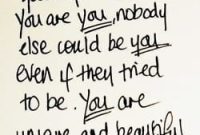 you are you, nobody
else could be you
even if they tried
to be. You are
unique and beautiful